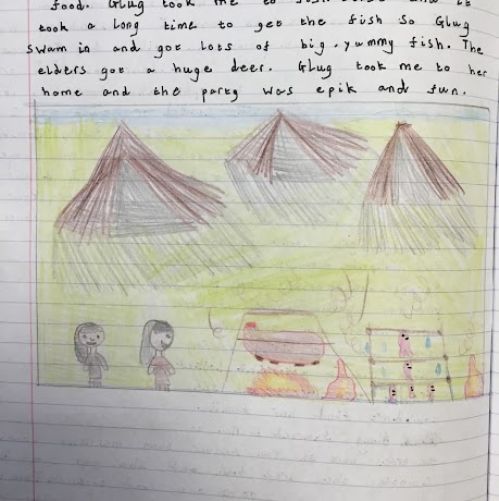 food. Glug took me to
took a long time to get the fish so Glug
swam in and got lots of big, yummy fish. The
elders got a huge deer. Glug took me to her
home and the party was epik and fun.